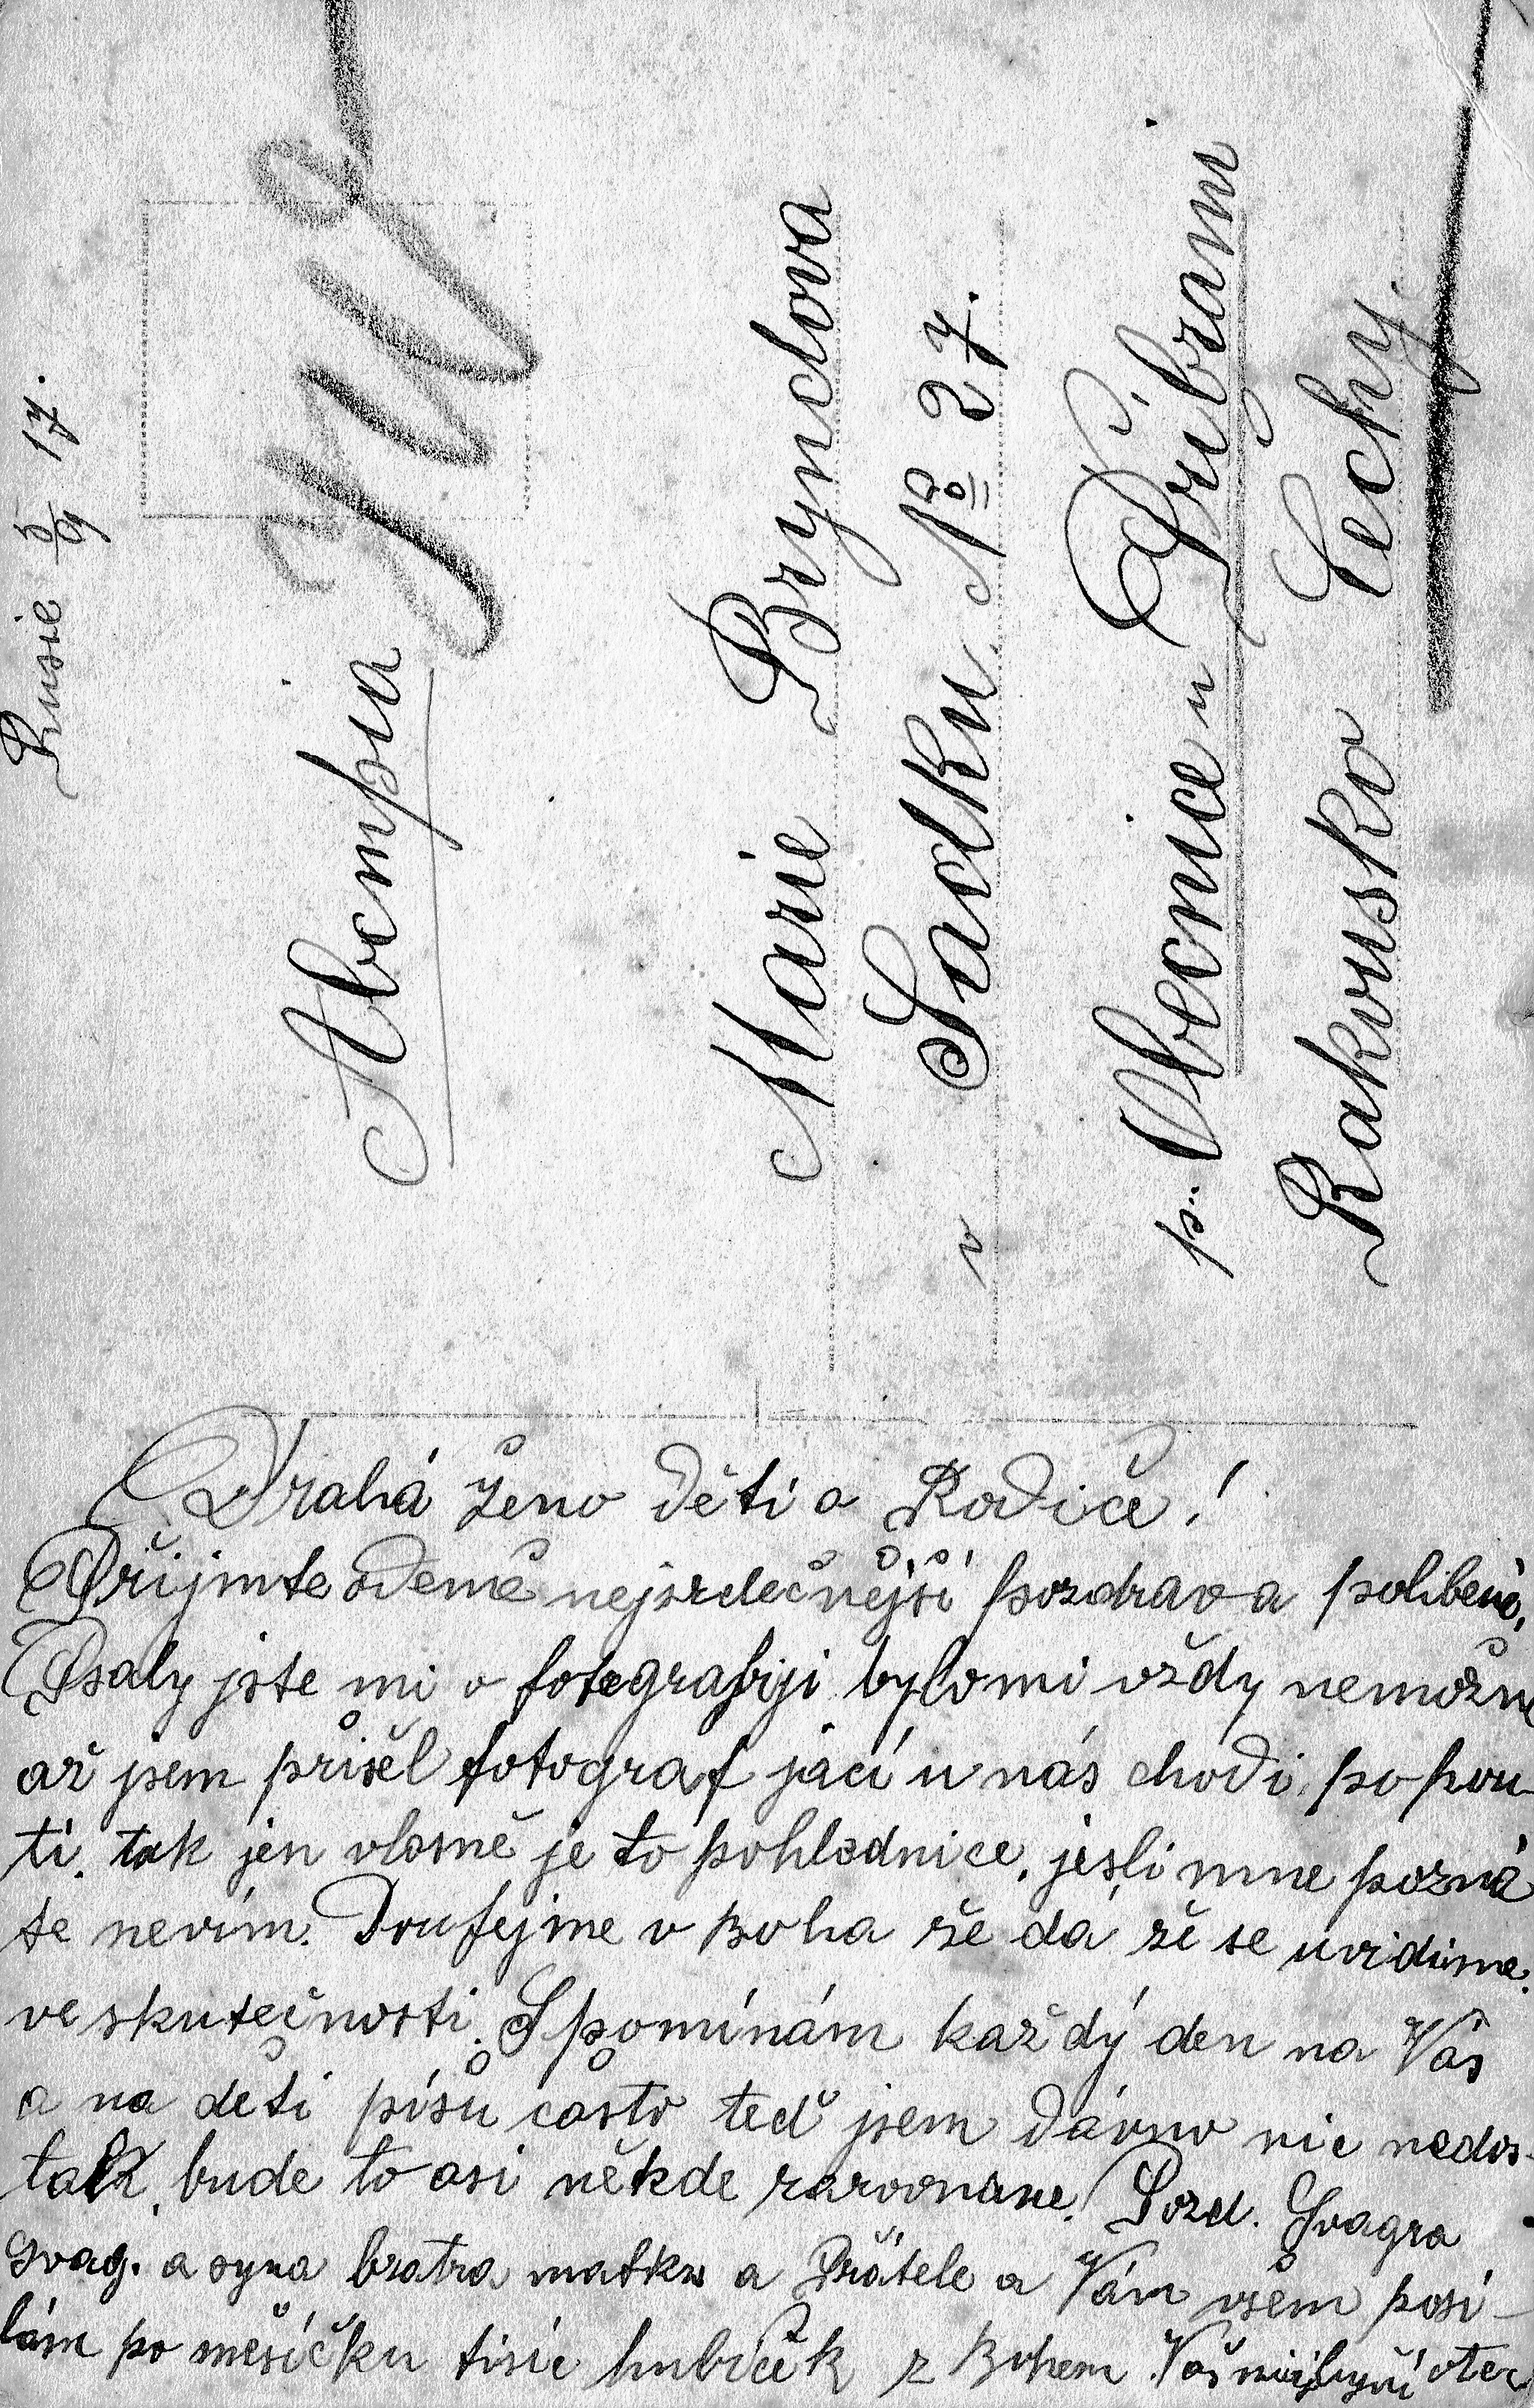 Rusie 5/9 17.
Австрія
Marie Bryndova
v Sadku No 27.
p. Obecnice u Příbrami
Rakousko Čechy.
Drahá ženo děti a Rodiče!
Přijmte odemě nejsrdečnější pozdrav a polibení,
Psaly jste mi o fotografiji bylo mi vždy nemožné
až jsem přišel fotograf jací u nás chodi po pou-
ti. tak jen vlasně je to pohlednice, jesli mne pozná
te nevím. Doufejme v Boha že dá že se uvidíme.
ve skutečnosti. Spomínám každý den na Vás
a na děti píšu často teď jsem dávno nic nedos-
tal, bude to asi někde zarovnane. Pozd. Švagra
švag. a syna bratra matku a Přátele a Vám všem posí-
lám po měsíčku tisíc hubiček z Bohem Váš otec